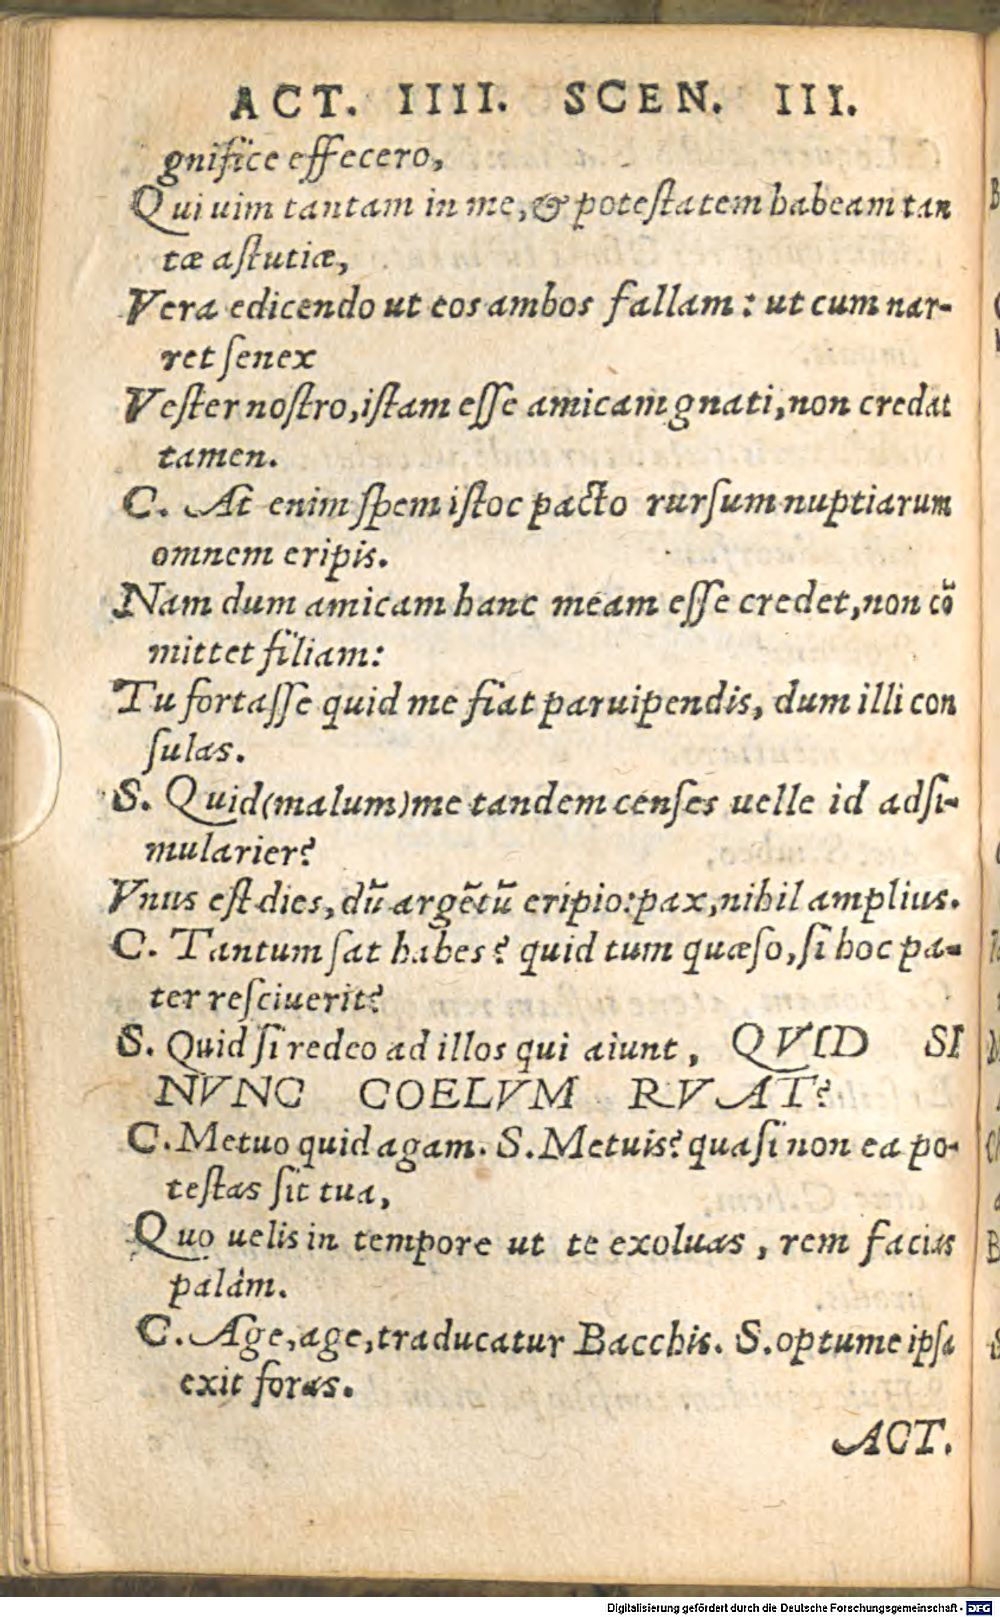 ACT. IIII. SCEN. III.
gnifice effecero,
Qui uim tantam in me, & potestatem habeam tan
tæ astutiæ,
Vera edicendo ut eos ambos fallam: ut cum nar-
ret senex
Vester nostro, istam esse amicam gnati, non credat
tamen.
C. At enim spem istoc pacto rursum nuptiarum
omnem eripis.
Nam dum amicam hanc meam esse credet, non cõ
mittet filiam:
Tu fortasse quid me fiat paruipendis, dum illi con
sulas.
S. Quid (malum) me tandem censes uelle id adsi-
mularier?
Vnus est dies, dũ argẽtũ eripio: pax, nihil amplius.
C. Tantum sat habes? quid tum quæso, si hoc pa-
ter resciuerit?
S. Quid si redeo ad illos qui aiunt, QVID SI
NVNC COELVM RVAT?
C. Metuo quid agam. S. Metuis? quasi non ea po-
testas sit tua,
Quo uelis in tempore ut te exoluas, rem facias
palàm.
C. Age, age, traducatur Bacchis. S. optume ipsa
exit foras.
ACT.
Digitalisierung gefördert durch die Deutsche Forschungsgemeinschaft - DFG